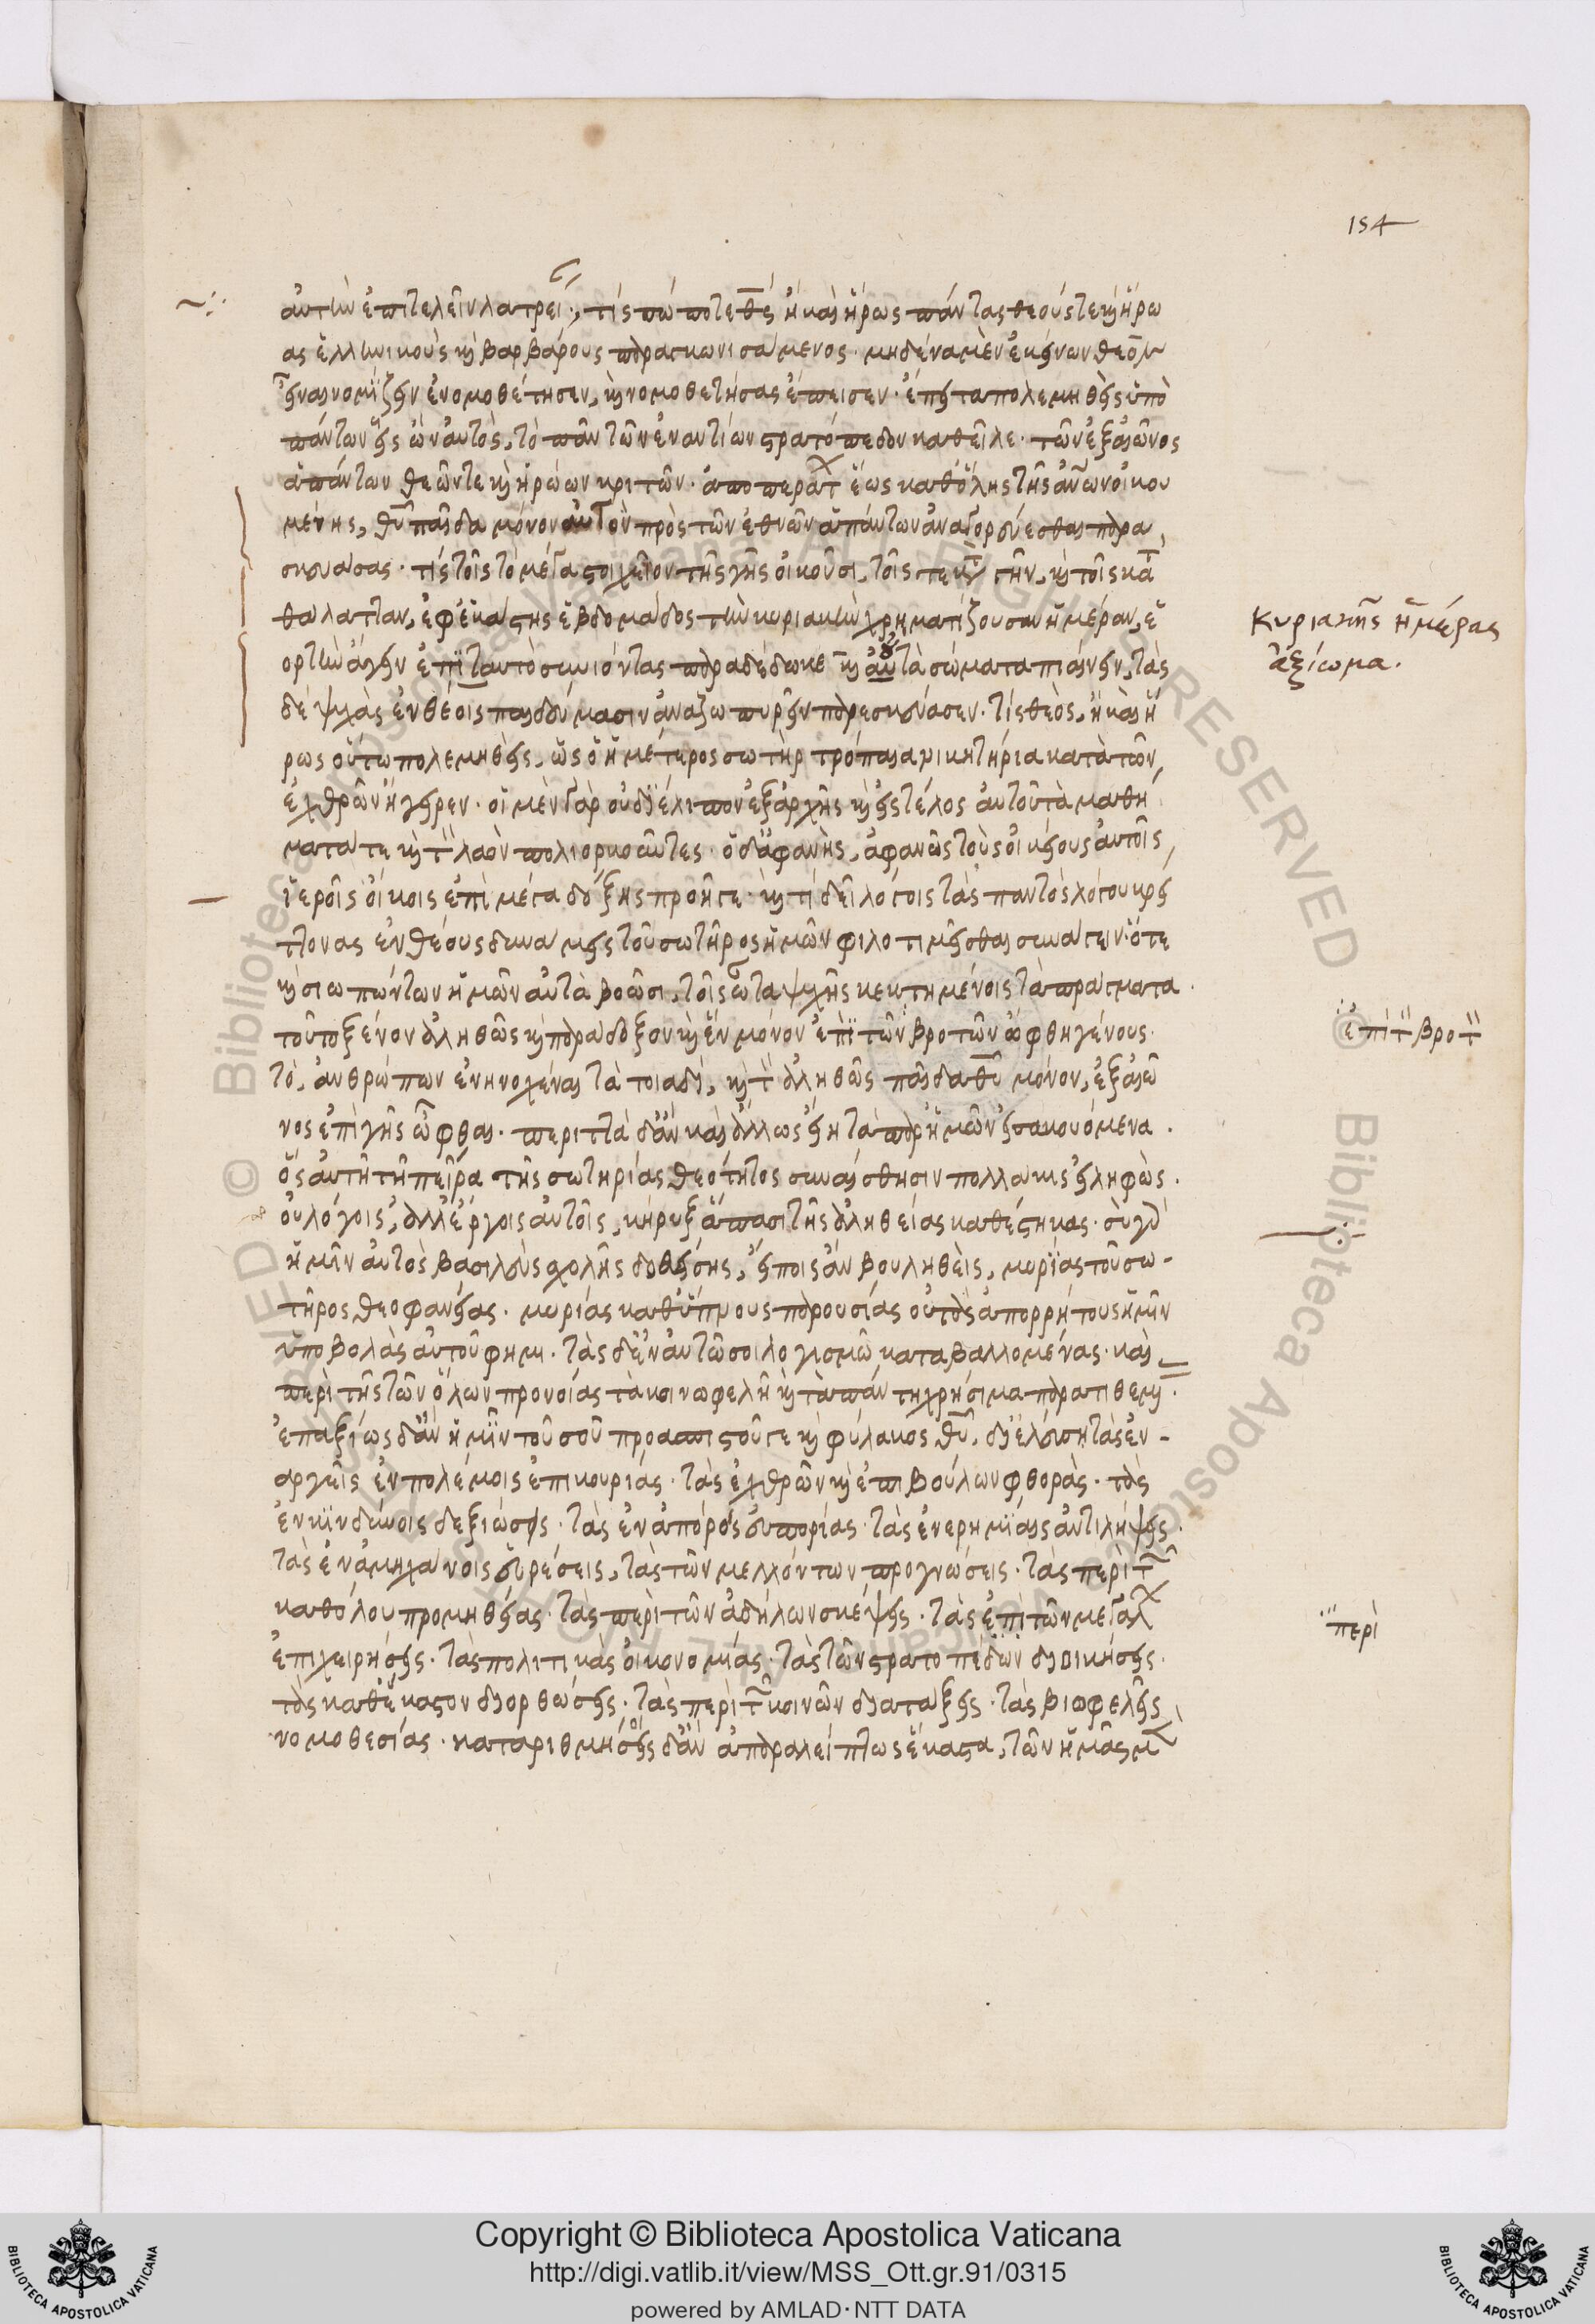 154
αὐτὴν ἐπιτελεῖν λατρεί, τίς πώποτε θς ἢ καὶ ἥρως πάντας θεούς τε καὶ ἥρω
ας ἑλληνικοὺς καὶ βαρβάρους παραγκωνισάμενος. μηδένα μὲν ἐκείνων θεὸν
εἶναι νομίζειν ἐνομοθέτησεν, καὶ νομοθετήσας ἔπεισεν. ἔπειτα πολεμηθεὶς ὑπὸ
πάντων εἷς ὢν αὐτὸς, τὸ πᾶν τῶν ἐναντίων στρατόπεδον καθεῖλε. τῶν ἐξ αἰῶνος
ἁπάντων θεῶν τε καὶ ἡρώων κριτῶν. ἀπο περάτ ἕως καθόλης τῆς ἀνων οἰκου
μένης, θυ παῖδα μόνον αὐτὸν πρὸς τῶν ἐθνῶν ἁπάντων ἀναγορεύεσθαι παρα
σκευάσας. τίς τοῖς τὸ μέγα στοιχεῖον τῆς γῆς οἰκοῦσι, τοῖς τε κατ γῆν, καὶ τοῖς κατ
θάλατταν, ἐφ' ἑκάστης ἑβδομάδος τὴν κυριακὴν χρηματίζουσαν ἡμέραν, ἑ
ορτὴν ἄγειν ἐπὶ ταυτὸ συνιόντας παραδέδωκε καὶ αὐτὰ σώματα πιαίνειν, τὰς
δὲ ψυχὰς ἐνθέοις παιδεύμασιν ἀναζωπυρεῖν παρεσκεύασεν. τίς θεὸς, ἢ καὶ ἥ
ρως οὕτω πολεμηθεὶς, ὡς ὁ ἡμέτερος σωτὴρ τρόπαια νικητήρια κατὰ τῶν
ἐχθρῶν ἤγειρεν. οἱ μὲν γὰρ οὐ διέλιπον ἐξ ἀρχῆς καὶ εἰς τέλος αὐτοῦ τὰ μαθή
ματά τε καὶ τ λαὸν πολιορκοῦντες. ὁ δ' ἀφανὴς, ἀφανῶς τοὺς οἰκείους αὐτοῖς
ἱεροῖς οἴκοις ἐπὶ μέγα δόξης προῆγε. καὶ τί δεῖ λόγοις τὰς παντὸς λόγου κρεί
ττονας ἐνθέους δυνάμεις τοῦ σωτῆρος ἡμῶν φιλοτιμεῖσθαι συνάγειν. ὅτε
καὶ σιωπώντων ἡμῶν αὐτὰ βοῶσι, τοῖς ὦτα ψυχῆς κεκτημένοις τὰ πράγματα.
τοῦτο ξένον ἀληθῶς καὶ παράδοξον καὶ ἓν μόνον ἐπὶ τῶν βροτῶν ὤφθη γένους.
τὸ, ἀνθρώπων ἐνηνοχέναι τὰ τοιάδε, καὶ τ ἀληθῶς παῖδα θυ μόνον, ἐξ αἰῶ
νος ἐπὶ γῆς ὦφθαι. περιττὰ δ' ἂν καὶ ἄλλως εἴη τὰ παρ' ἡμῶν εἰσακουόμενα.
ὃς αὐτῇ τῇ πείρᾳ τῆς σωτηρίας θεότητος συναίσθησιν πολλάκις εἰληφὼς.
οὐ λόγοις, ἀλλ' ἔργοις αὐτοῖς, κήρυξ ἅπασι τῆς ἀληθείας καθέστηκας. σὺ γὰρ
ἡμῖν αὐτὸς βασιλεὺς σχολῆς δοθείσης, εἴποις ἂν βουληθεὶς, μυρίας τοῦ σω-
τῆρος θεοφανείας. μυρίας καθ' ὕπνους παρουσίας οὔτι τὰς ἀπορρήτους ἡμῖν
ὑποβολὰς αὐτοῦ φημι. τὰς δ' ἐν αὐτῶ σοι λογισμῶ καταβαλλομένας. καὶ
περὶ τῆς τῶν ὅλων προνοίας τὰ κοινωφελῆ καὶ τὰ πάντη χρήσιμα παρατιθέμε.
ἐπαξίως δ' ἂν ἡμῖν τοῦ σοῦ προασπιστοῦ τε καὶ φύλακος θυ, διέλθοις τὰς ἐν-
αργεῖς ἐν πολέμοις ἐπικουρίας. τὰς ἐχθρῶν καὶ ἐπιβούλων φθορὰς. τὰς
ἐν κινδύνοις δεξιώσεις. τὰς ἐν ἀπόροις εὐπορίας. τὰς ἐν ερημίαις ἀντιλήψεις.
τὰς ἐν ἀμηχάνοις εὑρέσεις, τὰς τῶν μελλόντων προγνώσεις. τὰς περὶ τ
καθόλου προμηθείας. τὰς περὶ τῶν ἀδήλων σκέψεις. τὰς ἐπὶ τῶν μεγάλ
ἐπιχειρήσεις. τὰς πολιτικὰς οἰκονομίας. τὰς τῶν στρατοπέδων διοικήσεις.
τὰς καθ' ἕκαστον διορθώσεις. τὰς περὶ τ κοινῶν διατάξεις. τὰς βιωφελεῖς
νομοθεσίας. καταριθμήσεις δ' ἂν ἀπαραλείπτως ἕκαστα, τῶν ἡμᾶς μ
Κυριακῆς ἡμέρας
ἀξίωμα.
ἐπὶ τ βροτ
περὶ
Copyright © Biblioteca Apostolica Vaticana
http://digi.vatlib.it/view/MSS_Ott.gr.91/0315
powered by AMLAD·NTT DATA
BIBLIOTECA APOSTOLICA VATICANA
BIBLIOTECA APOSTOLICA VATICANA